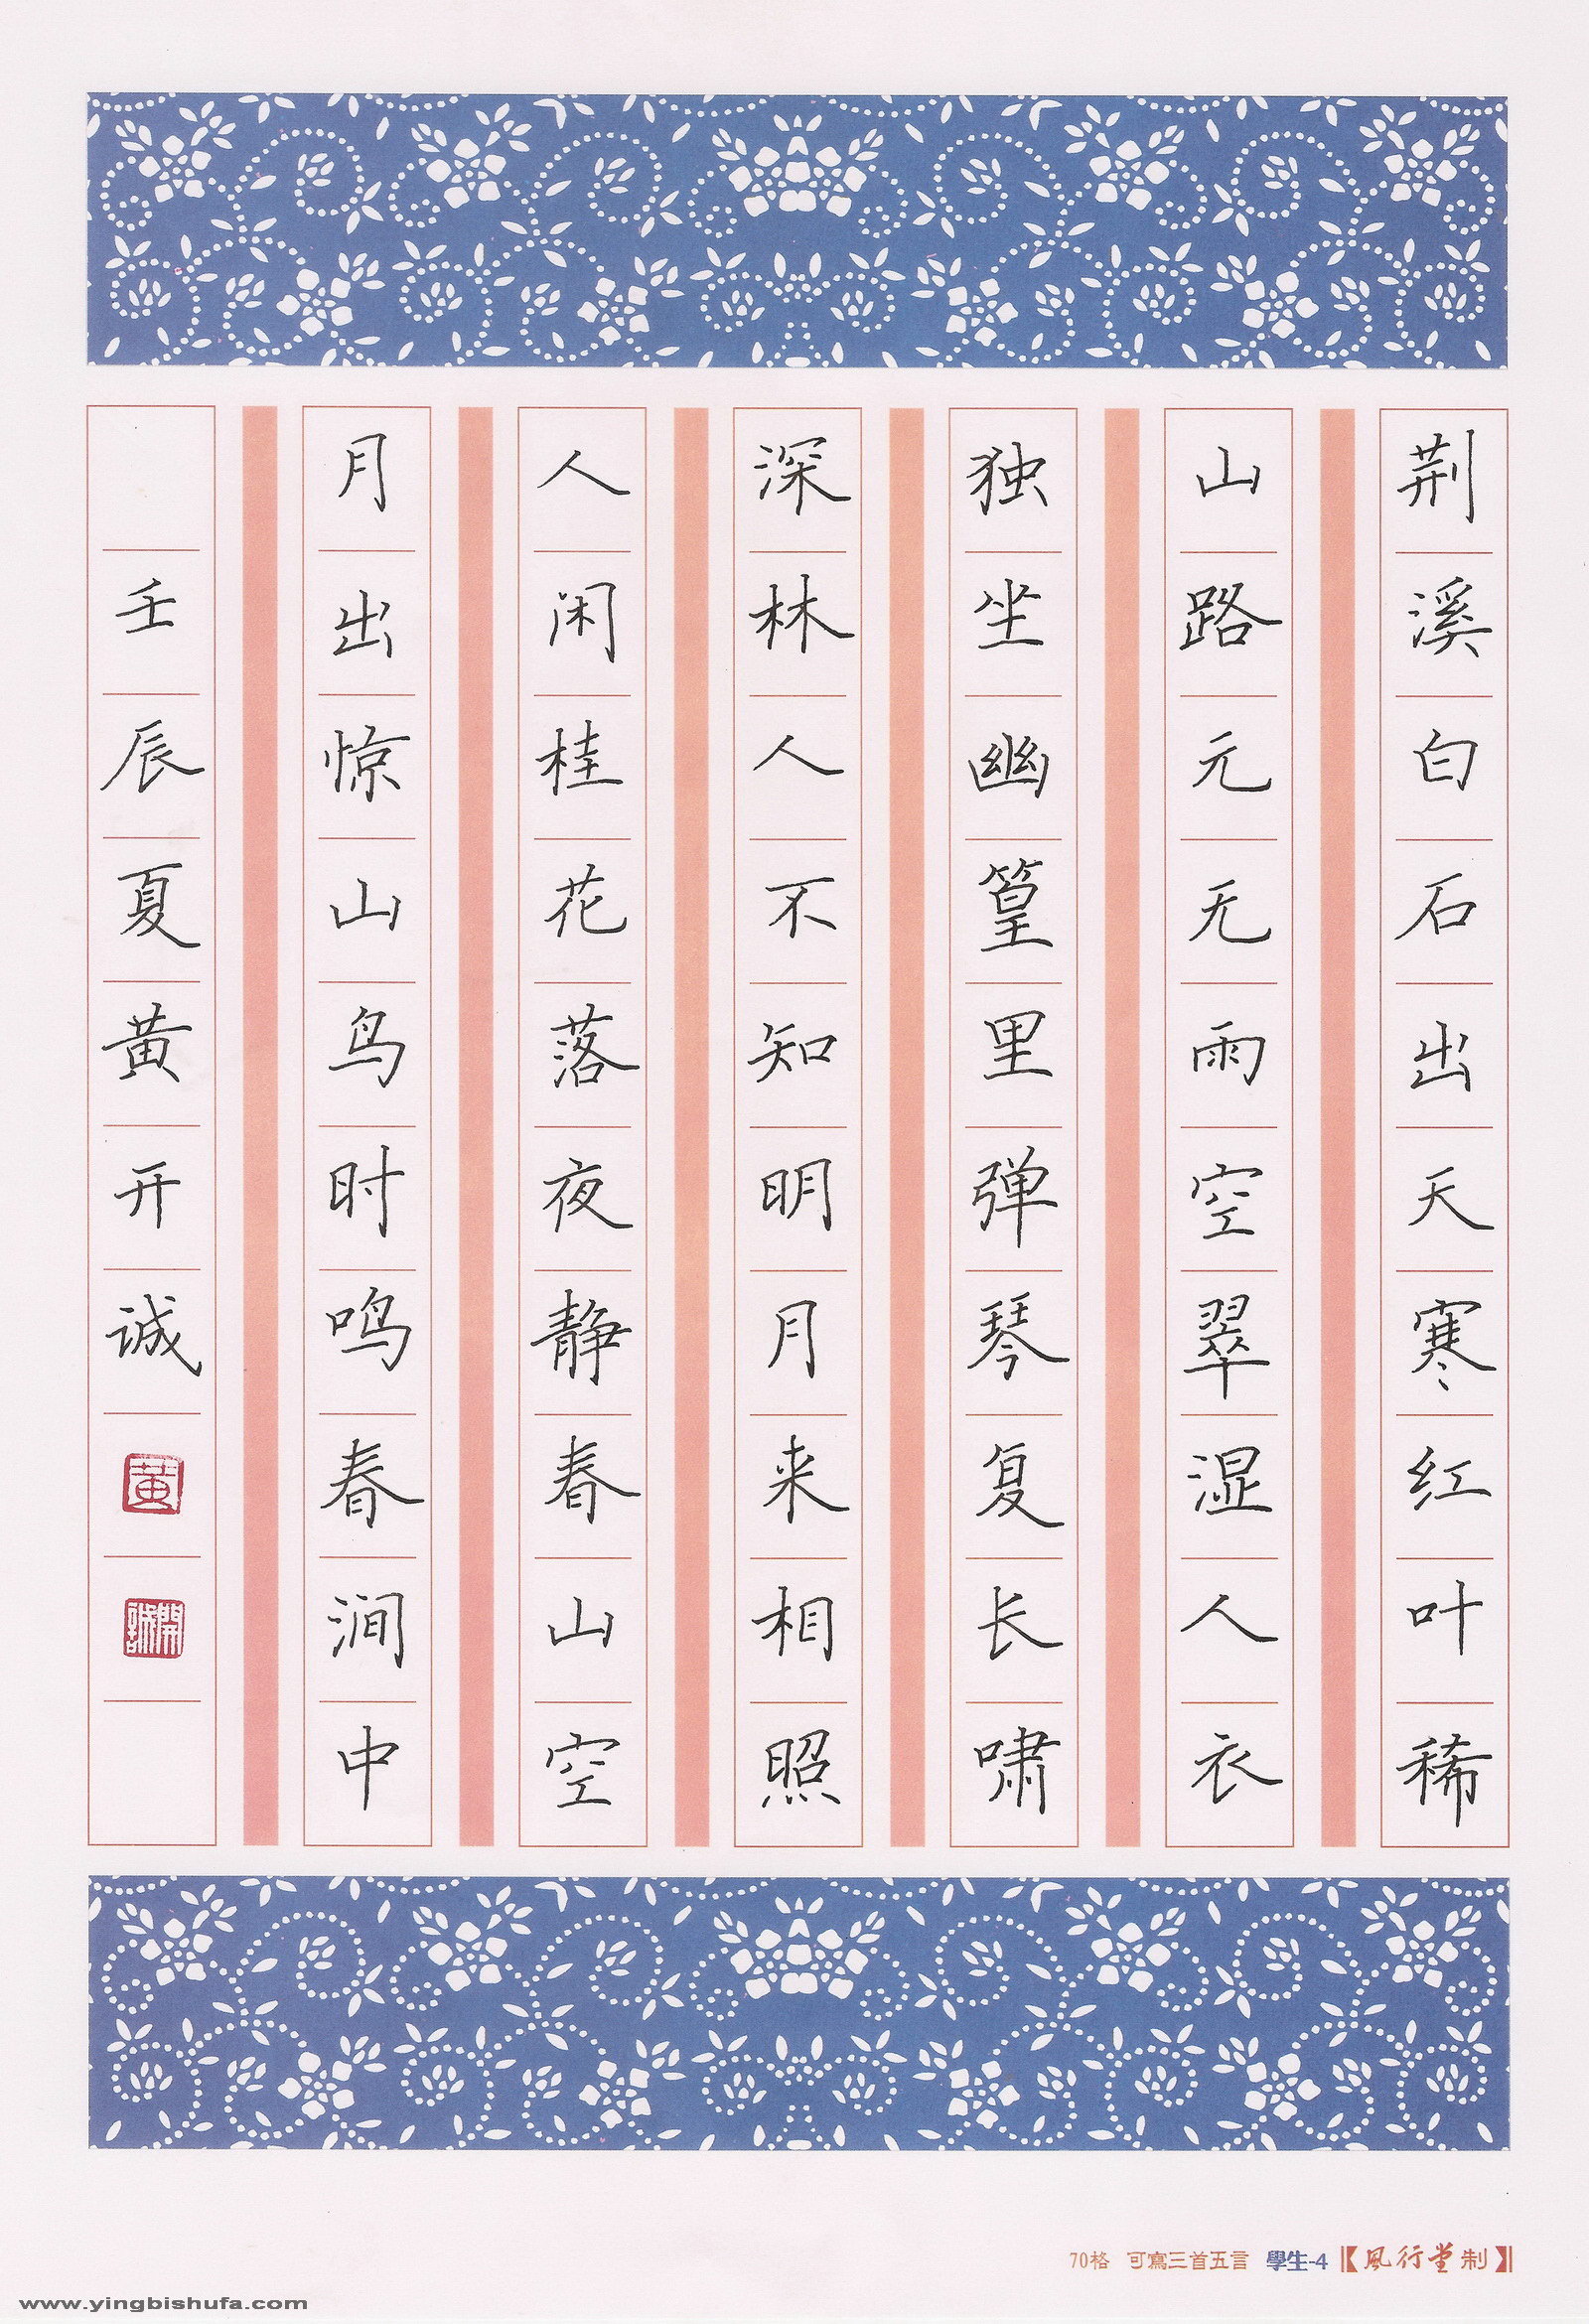 荆溪白石出天寒红叶稀
山路元无雨空翠湿人衣
独坐幽篁里弹琴复长啸
深林人不知明月来相照
人闲桂花落夜静春山空
月出惊山鸟时鸣春涧中
壬辰夏黄开诚
黄
開誠
70格 可寫三首五言 學生-4【風行堂制】
www.yingbishufa.com